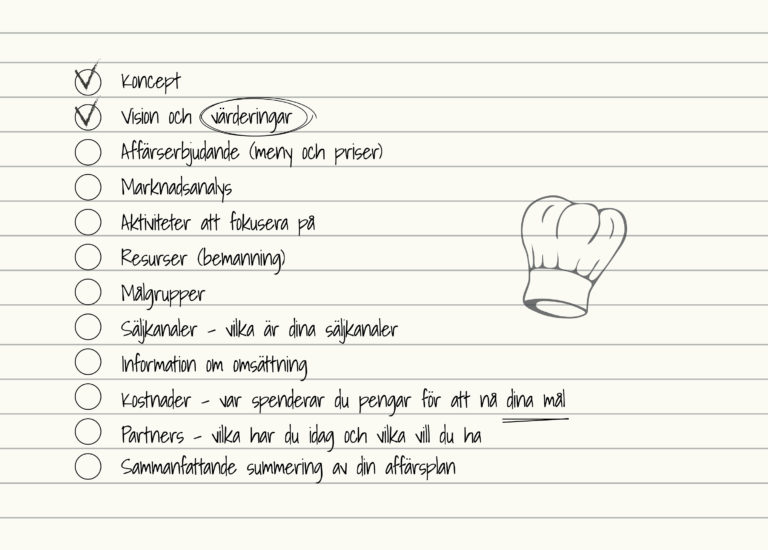 Koncept
Vision och värderingar
Affärserbjudande (meny och priser)
Marknadsanalys
Aktiviteter att fokusera på
Resurser (bemanning)
Målgrupper
Säljkanaler - vilka är dina säljkanaler
Information om omsättning
Kostnader - var spenderar du pengar för att nå dina mål
Partners - vilka har du idag och vilka vill du ha
Sammanfattande summering av din affärsplan